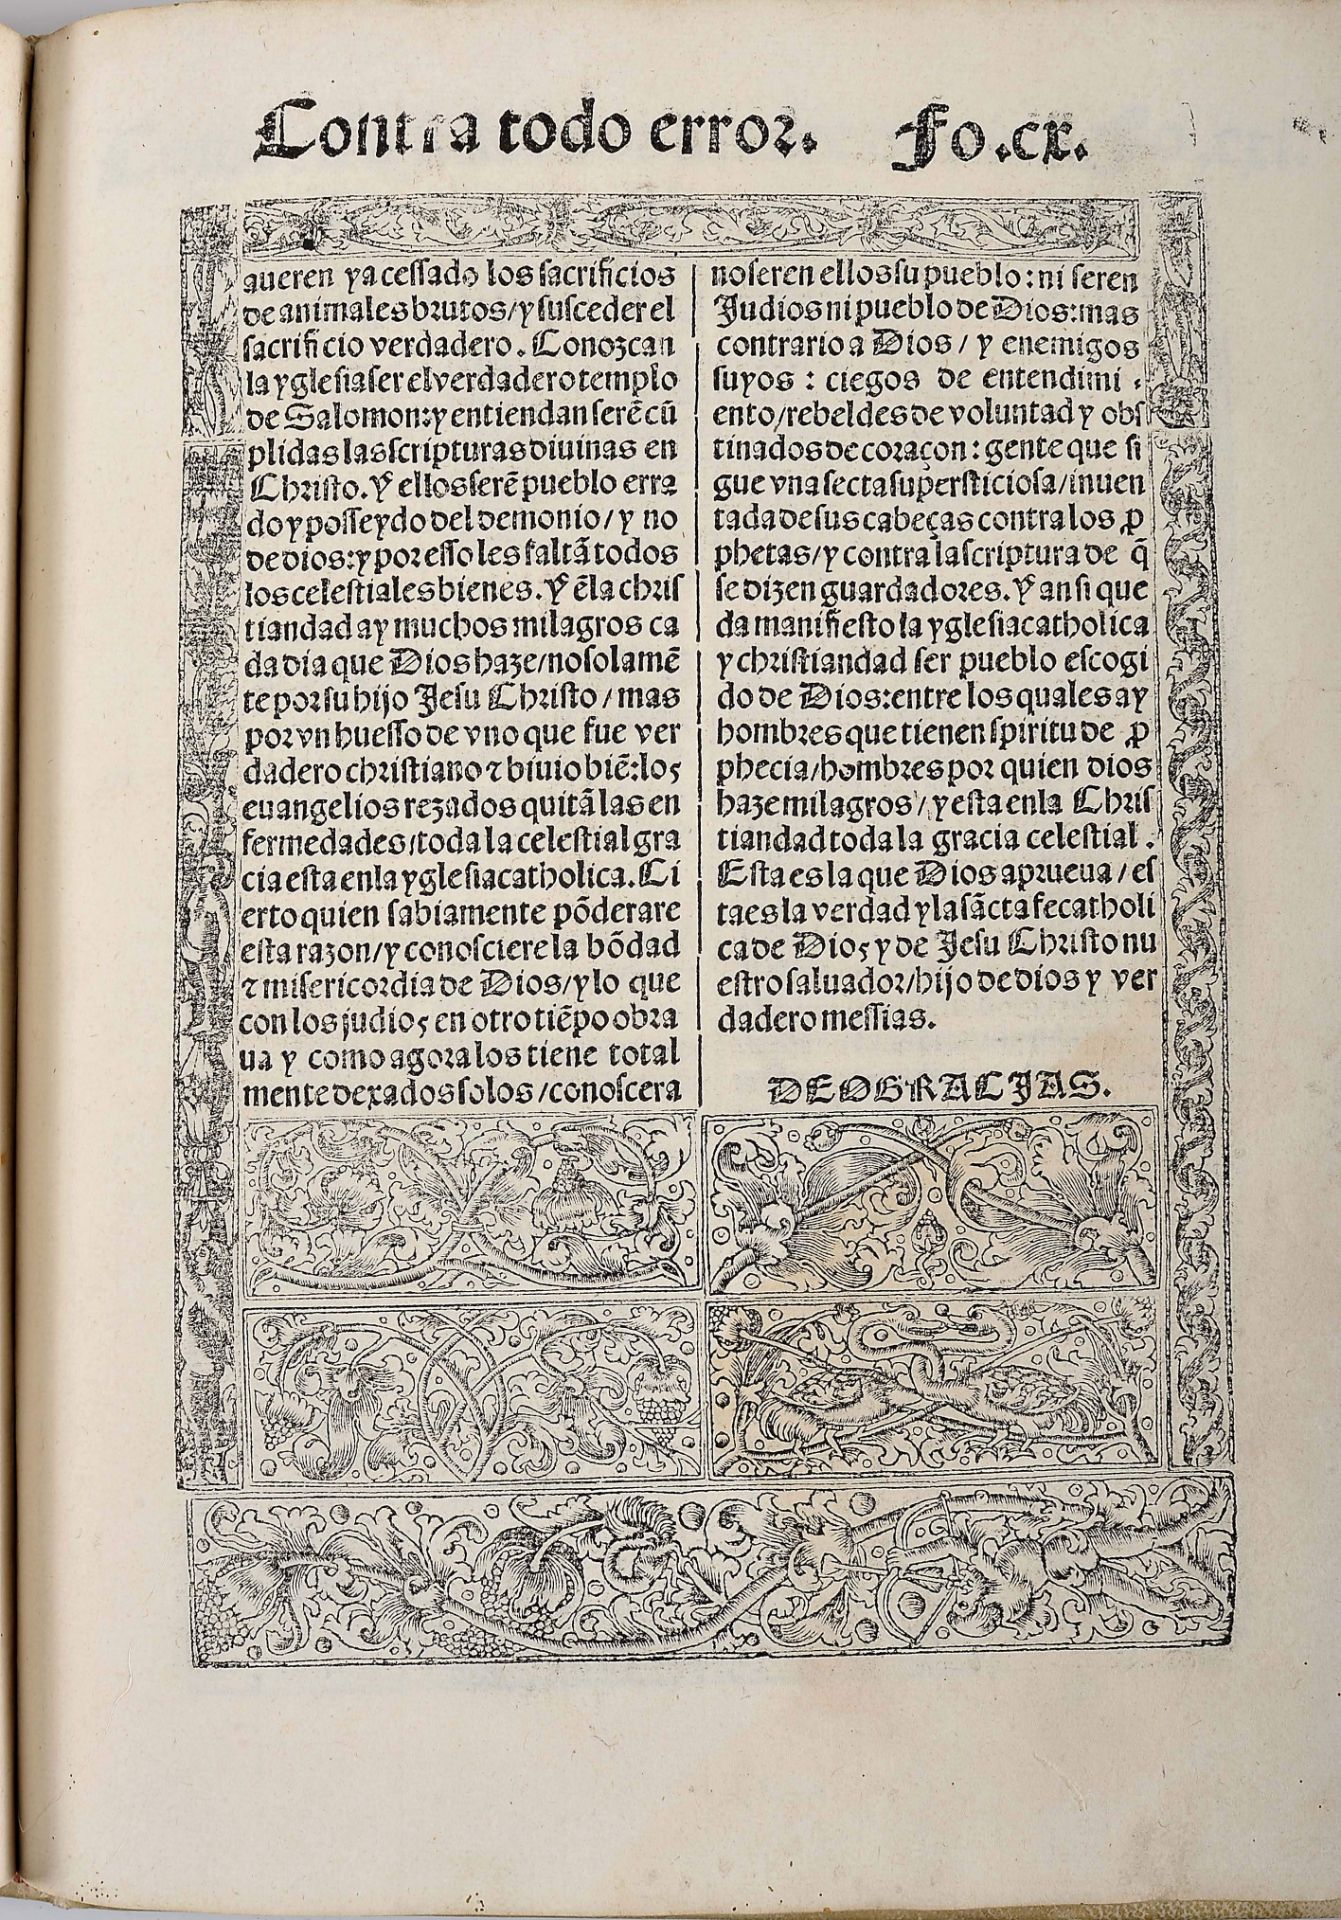 Contra todo error. Fo.cx.
aueren ya cessado los sacrificios
de animales brutos/y susceder el
sacrificio verdadero. Conozcan
la yglesia ser el verdadero templo
de Salomon:y entiendan serẽ cũ
plidas las scripturas diuinas en
Christo. Y ellos serẽ pueblo erra
do y posseydo del demonio/y no
de dios:y por esso les faltã todos
los celestiales bienes. Y ẽ la chris
tiandad ay muchos milagros ca
da dia que Dios haze/no solamẽ
te por su hijo Jesu Christo/mas
por vn huesso de vno que fue ver
dadero christiano ⁊ biuio biẽ:los
euangelios rezados quitã las en
fermedades/toda la celestial gra
cia esta enla yglesia catholica. Ci
erto quien sabiamente põderare
esta razon/y conosciere la bõdad
⁊ misericordia de Dios/y lo que
con los judios en otro tiẽpo obra
ua y como agora los tiene total
mente dexados solos/conoscera
no seren ellos su pueblo:ni seren
Judios ni pueblo de Dios:mas
contrario a Dios/y enemigos
suyos: ciegos de entendimi
ento/rebeldes de voluntad y obs
tinados de coraçon: gente que si
gue vna secta supersticiosa/inuen
tada de sus cabeças contra los ꝓ
phetas/y contra la scriptura de q̃
se dizen guardadores. Y ansi que
da manifiesto la yglesia catholica
y christiandad ser pueblo escogi
do de Dios:entre los quales ay
hombres que tienen spiritu de ꝓ
phecia/hombres por quien dios
haze milagros/y esta enla Chris
tiandad toda la gracia celestial.
Esta es la que Dios aprueua/es
ta es la verdad y la sãcta fe catholi
ca de Dios y de Jesu Christo nu
estro saluador/hijo de dios y ver
dadero messias.
DEOGRACIAS.